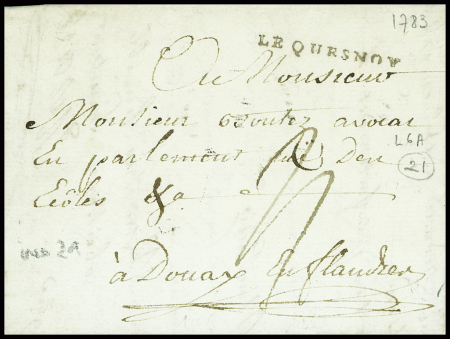 1783
LE QUESNOY
A Monsieur
Monsieur avocat
En parlement rüe Des
Ecôles &a
L6A
21
à Douay En flandres